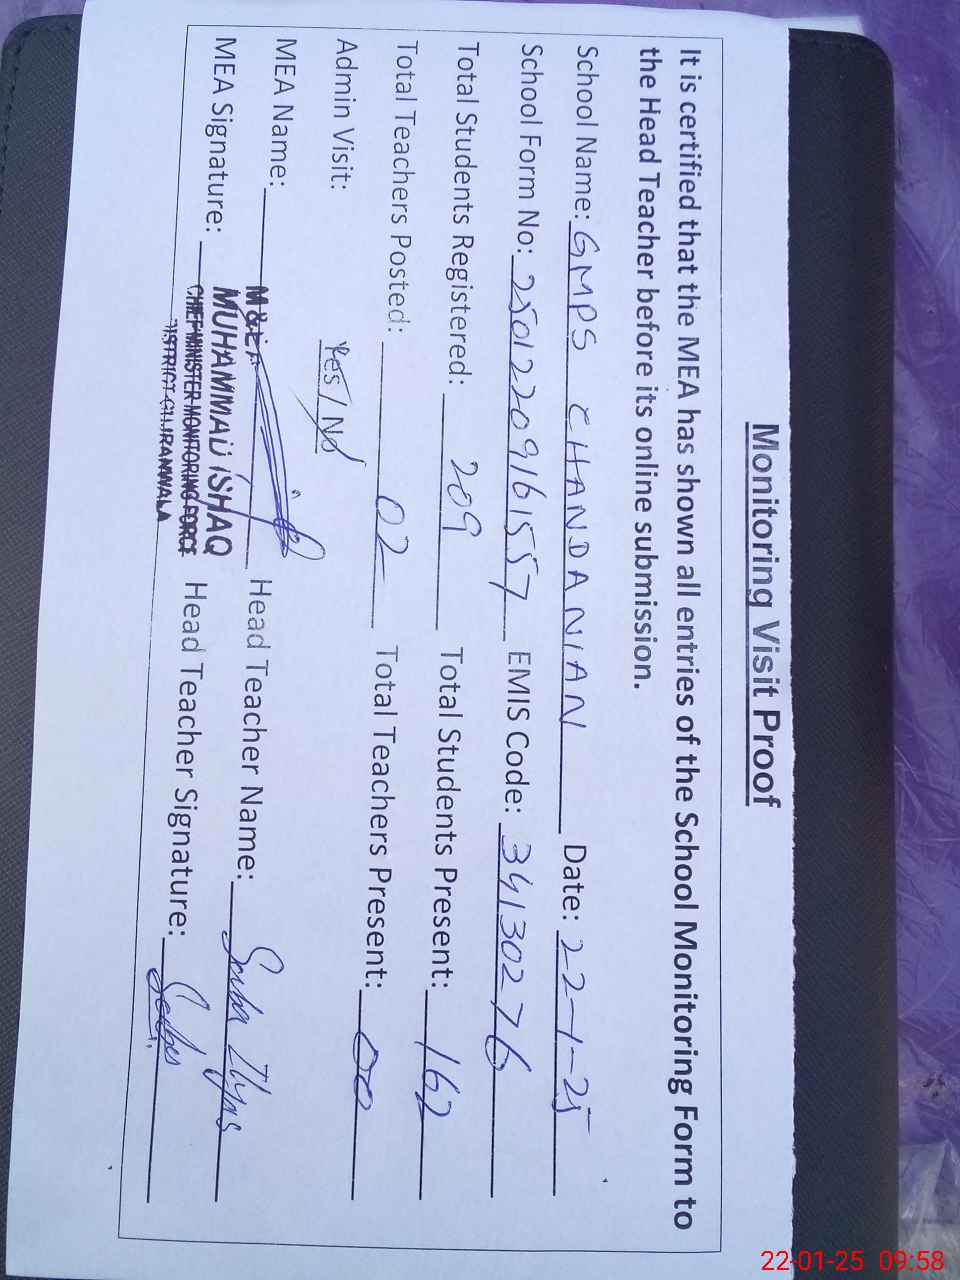 Monitoring Visit Proof
It is certified that the MEA has shown all entries of the School Monitoring Form to
the Head Teacher before its online submission.
School Name: GMPS CHANDANIAN Date: 22-1-25
School Form No: 25012209161557 EMIS Code: 34130276
Total Students Registered: 209 Total Students Present: 162
Total Teachers Posted: 02 Total Teachers Present: 00
Admin Visit: Yes / No
MEA Name: Head Teacher Name: Saba Ilyas
MEA Signature: Head Teacher Signature: Saba
MUHAMMAD ISHAQ
CHIEF MINISTER MONITORING FORCE
DISTRICT GUJRANWALA
22-01-25 09:58